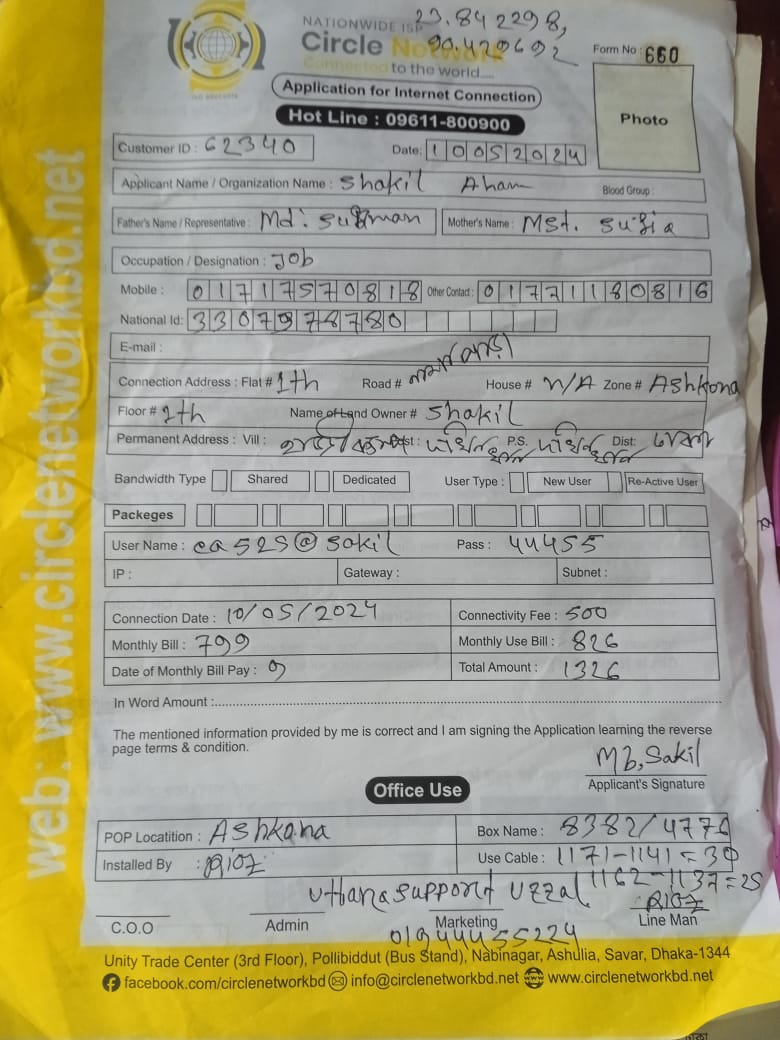 NATIONWIDE ISP 23.842298,
Circle Network 90.420602
Connected to the world....
Form No : 660
Application for Internet Connection
Hot Line : 09611-800900
Photo
Customer ID : 62340 Date: 10052024
Applicant Name / Organization Name : Shakil Aham Blood Group :
Father's Name / Representative : Md: Mother's Name : Mst. Sufia
Occupation / Designation : Job
Mobile : 01717570818 Other Contact : 01771180816
National Id: 3307978780
E-mail :
Connection Address : Flat # 1th Road # House # N/A Zone # Ashkona
Floor # 1th Name of Land Owner # Shakil
Permanent Address : Vill : P.S. Dist:
Bandwidth Type Shared Dedicated User Type : New User Re-Active User
Packeges
User Name : ca525@sakil Pass : 44455
IP : Gateway : Subnet :
Connection Date : 10/05/2024 Connectivity Fee : 500
Monthly Bill : 799 Monthly Use Bill : 826
Date of Monthly Bill Pay : 9 Total Amount : 1326
In Word Amount :
The mentioned information provided by me is correct and I am signing the Application learning the reverse
page terms & condition.
Mb, Sakil
Applicant's Signature
Office Use
POP Locatition : Ashkona Box Name : 8382/4776
Installed By : Use Cable : 1171-1141=30
1162-1137=25
Uthana support Uzzal
C.O.O Admin Marketing Line Man
01944455224
Unity Trade Center (3rd Floor), Pollibiddut (Bus Stand), Nabinagar, Ashulia, Savar, Dhaka-1344
facebook.com/circlenetworkbd info@circlenetworkbd.net www.circlenetworkbd.net
web: www.circlenetworkbd.net